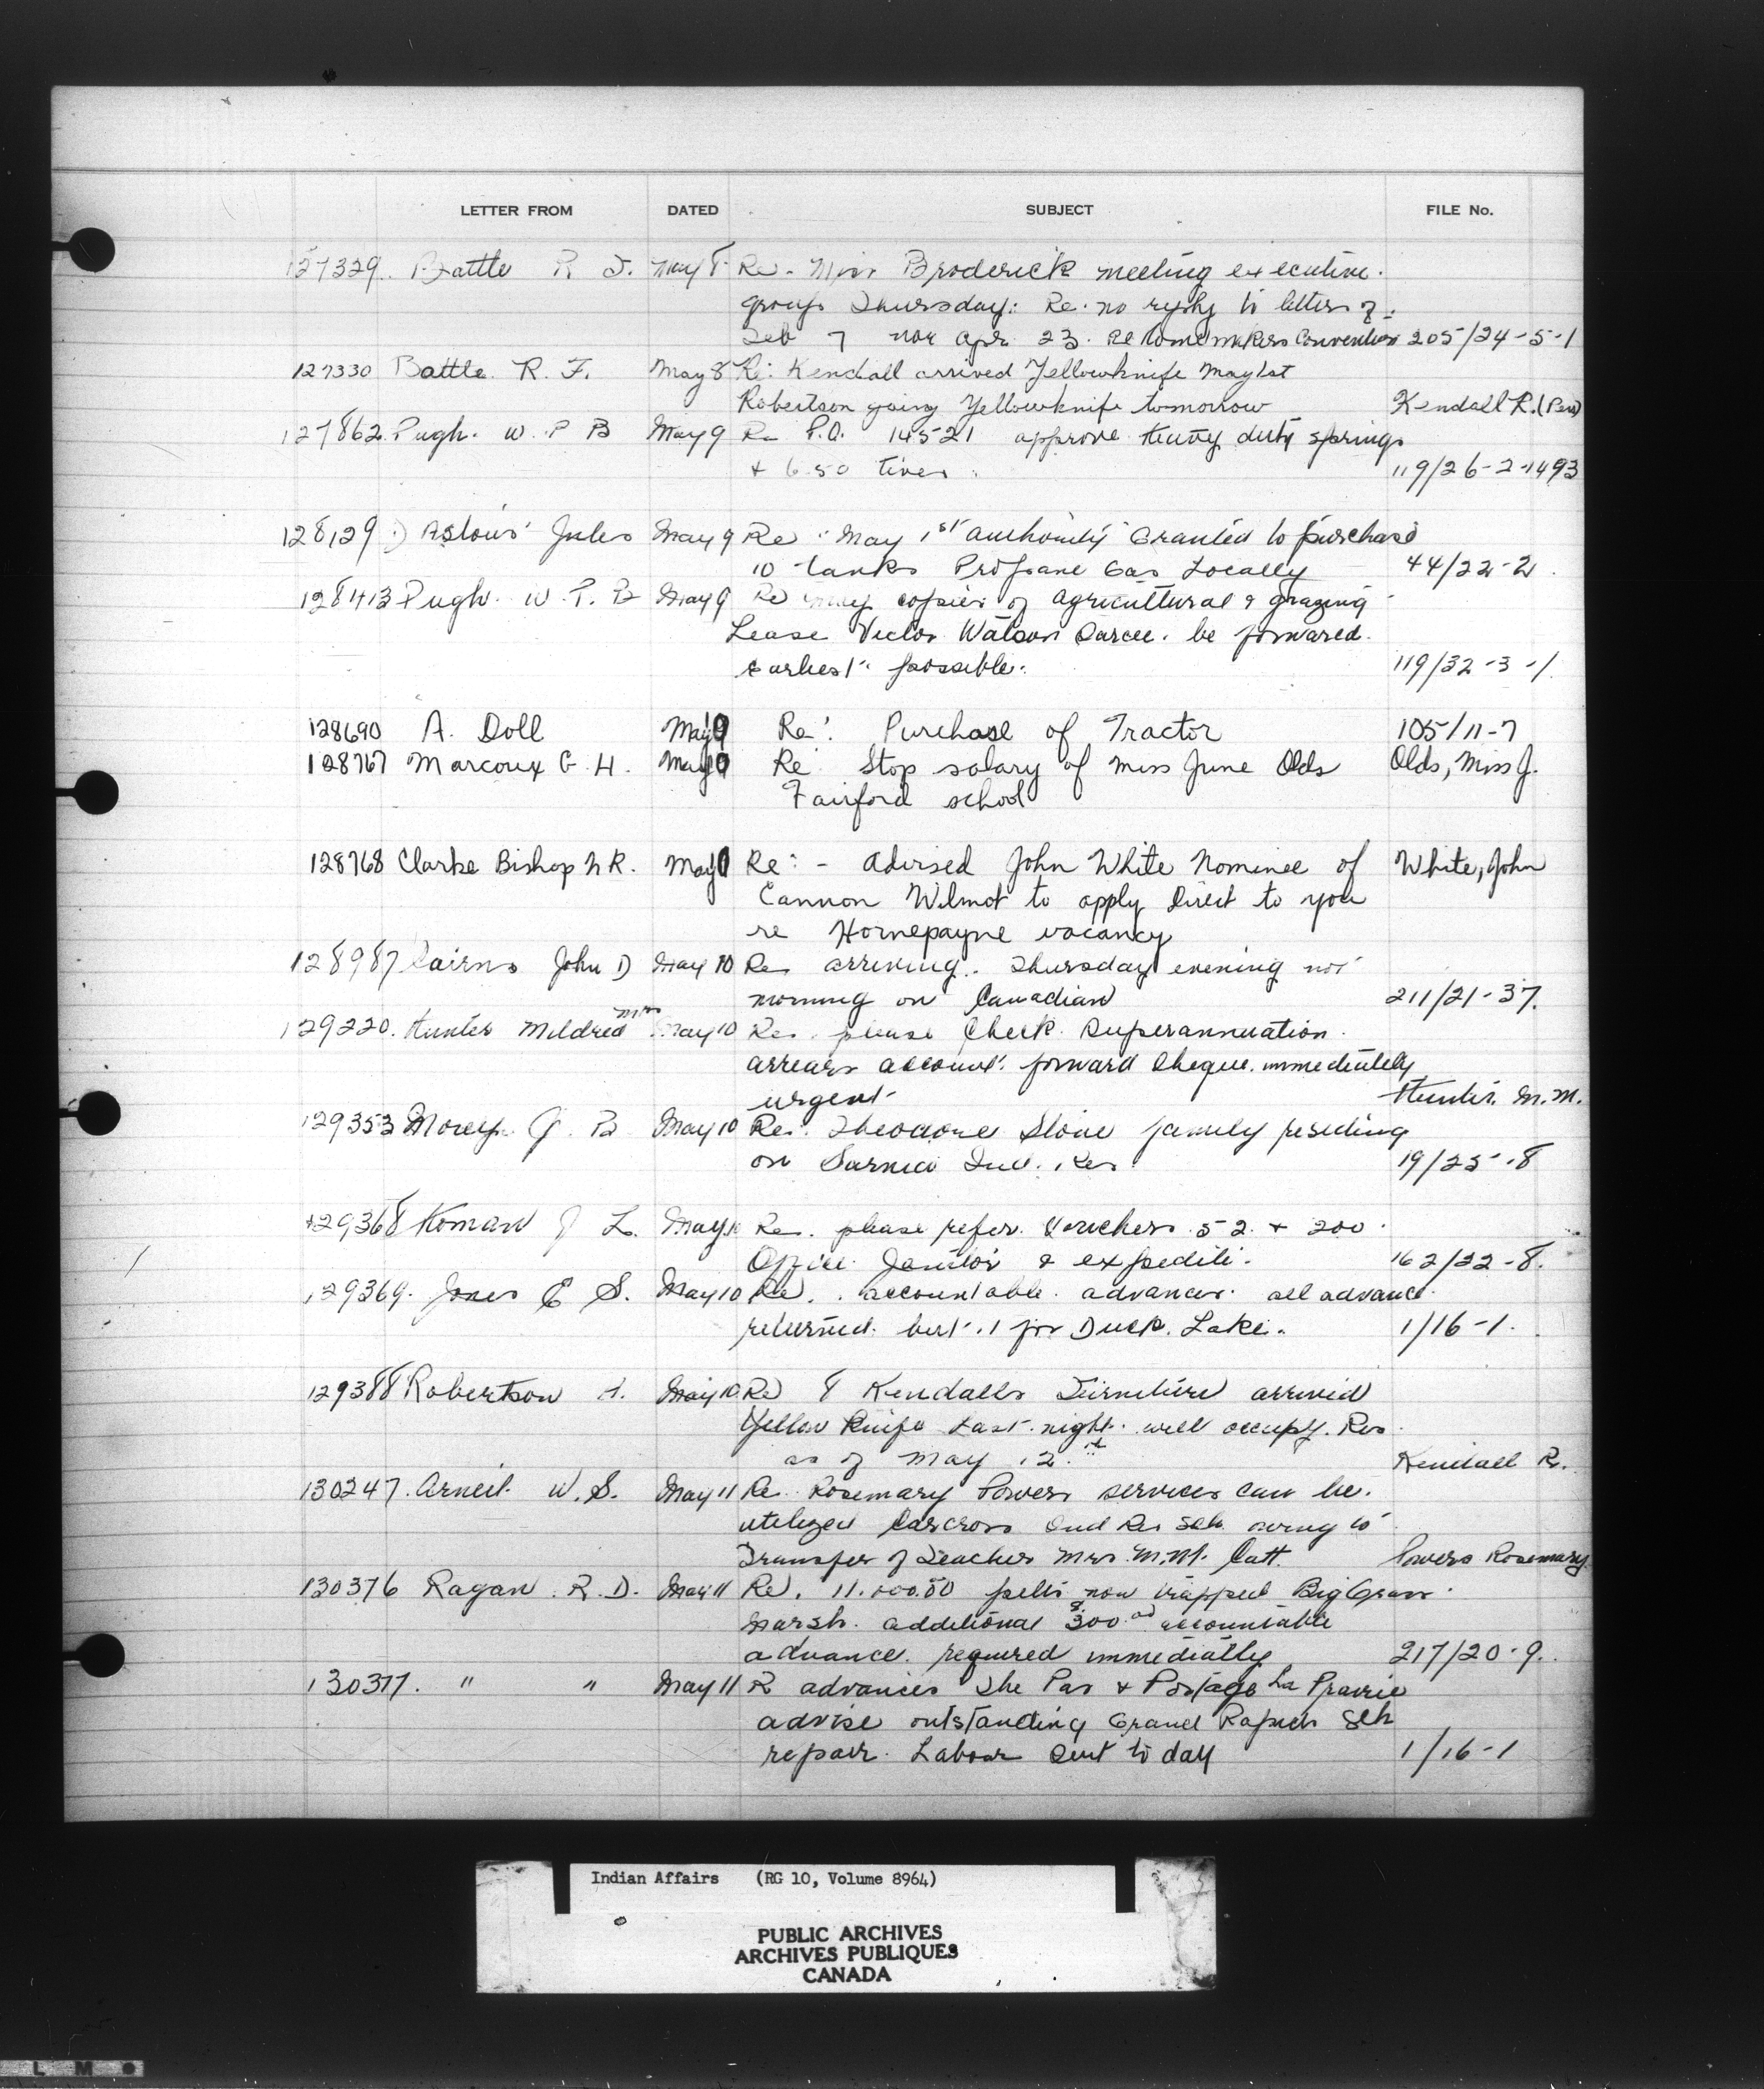 LETTER FROM DATED SUBJECT FILE No.
127329. Battle R F. May 8 Re. Miss Broderick meeting executive.
group Thursday: Re. no reply to letters of
Feb 7 nor Apr. 23. Re Homemakers Convention 205/24-5-1
127330 Battle R. F. May 8 Re: Kendall arrived Yellowknife May 1st
Robertson going Yellowknife tomorrow Kendall R.
127862 Pugh. W P B May 9 Re P.O. 14521 approve heavy duty springs
+ 6.50 tires. 119/26-2-1493
128129 D'Astous Jules May 9 Re May 1st authority Granted to purchase
10 tanks Propane Gas Locally 44/22-2.
128413 Pugh. W. P. B May 9 Re may copies of agricultural & grazing
Lease Victor Watson Sarcee. be forwared.
earliest possible. 119/32-3-1
128690 A. Doll May 9 Re: Purchase of Tractor 105/11-7
128767 Marcoux G. H. May Re Stop salary of Miss June Olds Olds, Miss J.
Fairford school
128768 Clarke Bishop N R. May Re: - Advised John White Nominee of White, John
Cannon Wilmot to apply Direct to you
re Hornepayne vacancy
128987 Cairns John D May 10 Re arriving. Thursday evening not
morning on Canadian 211/21-37.
129220. Hunter Mildred Mrs May 10 Re. please Check Superannuation.
arrears account. forward Cheque. immediately
urgent Hunter. M. M.
129353 Morey G. B May 10 Re. Theodore Stone family residing
on Sarnia Ind. Res. 19/25-8
129368 Homan J L. May 10 Re. please refer. Vouchers 52 + 200.
Office Janitor & expedite. 162/22-8.
129369. Jones E S. May 10 Re. accountable advances. all advance
returned. but 1 for Duck. Lake. 1/16-1.
129388 Robertson A. May 10. Re Kendalls Furniture arrived
Yellow Knife Last night. will occupy. Res
as of May 12. Kendall R.
130247. Arneil. W. S. May 11 Re. Rosemary Powers services can be.
utilized Carcross Ind Res Sch. owing to
Transfer of Teacher Mrs. M.M. Catt. Powers Rosemary
130376 Ragan. R. D. May 11 Re. 11.000.00 pelts now trapped Big Grass.
Marsh. additional $300.00 accountable
advance. required immediatly 217/20-9.
130377. " " May 11 R advances The Pas & Portage La Prairie
advise outstanding Grand Rapids Sch
repair. Labour Sent to day 1/16-1
Indian Affairs (RG 10, Volume 8964)
PUBLIC ARCHIVES
ARCHIVES PUBLIQUES
CANADA
L M